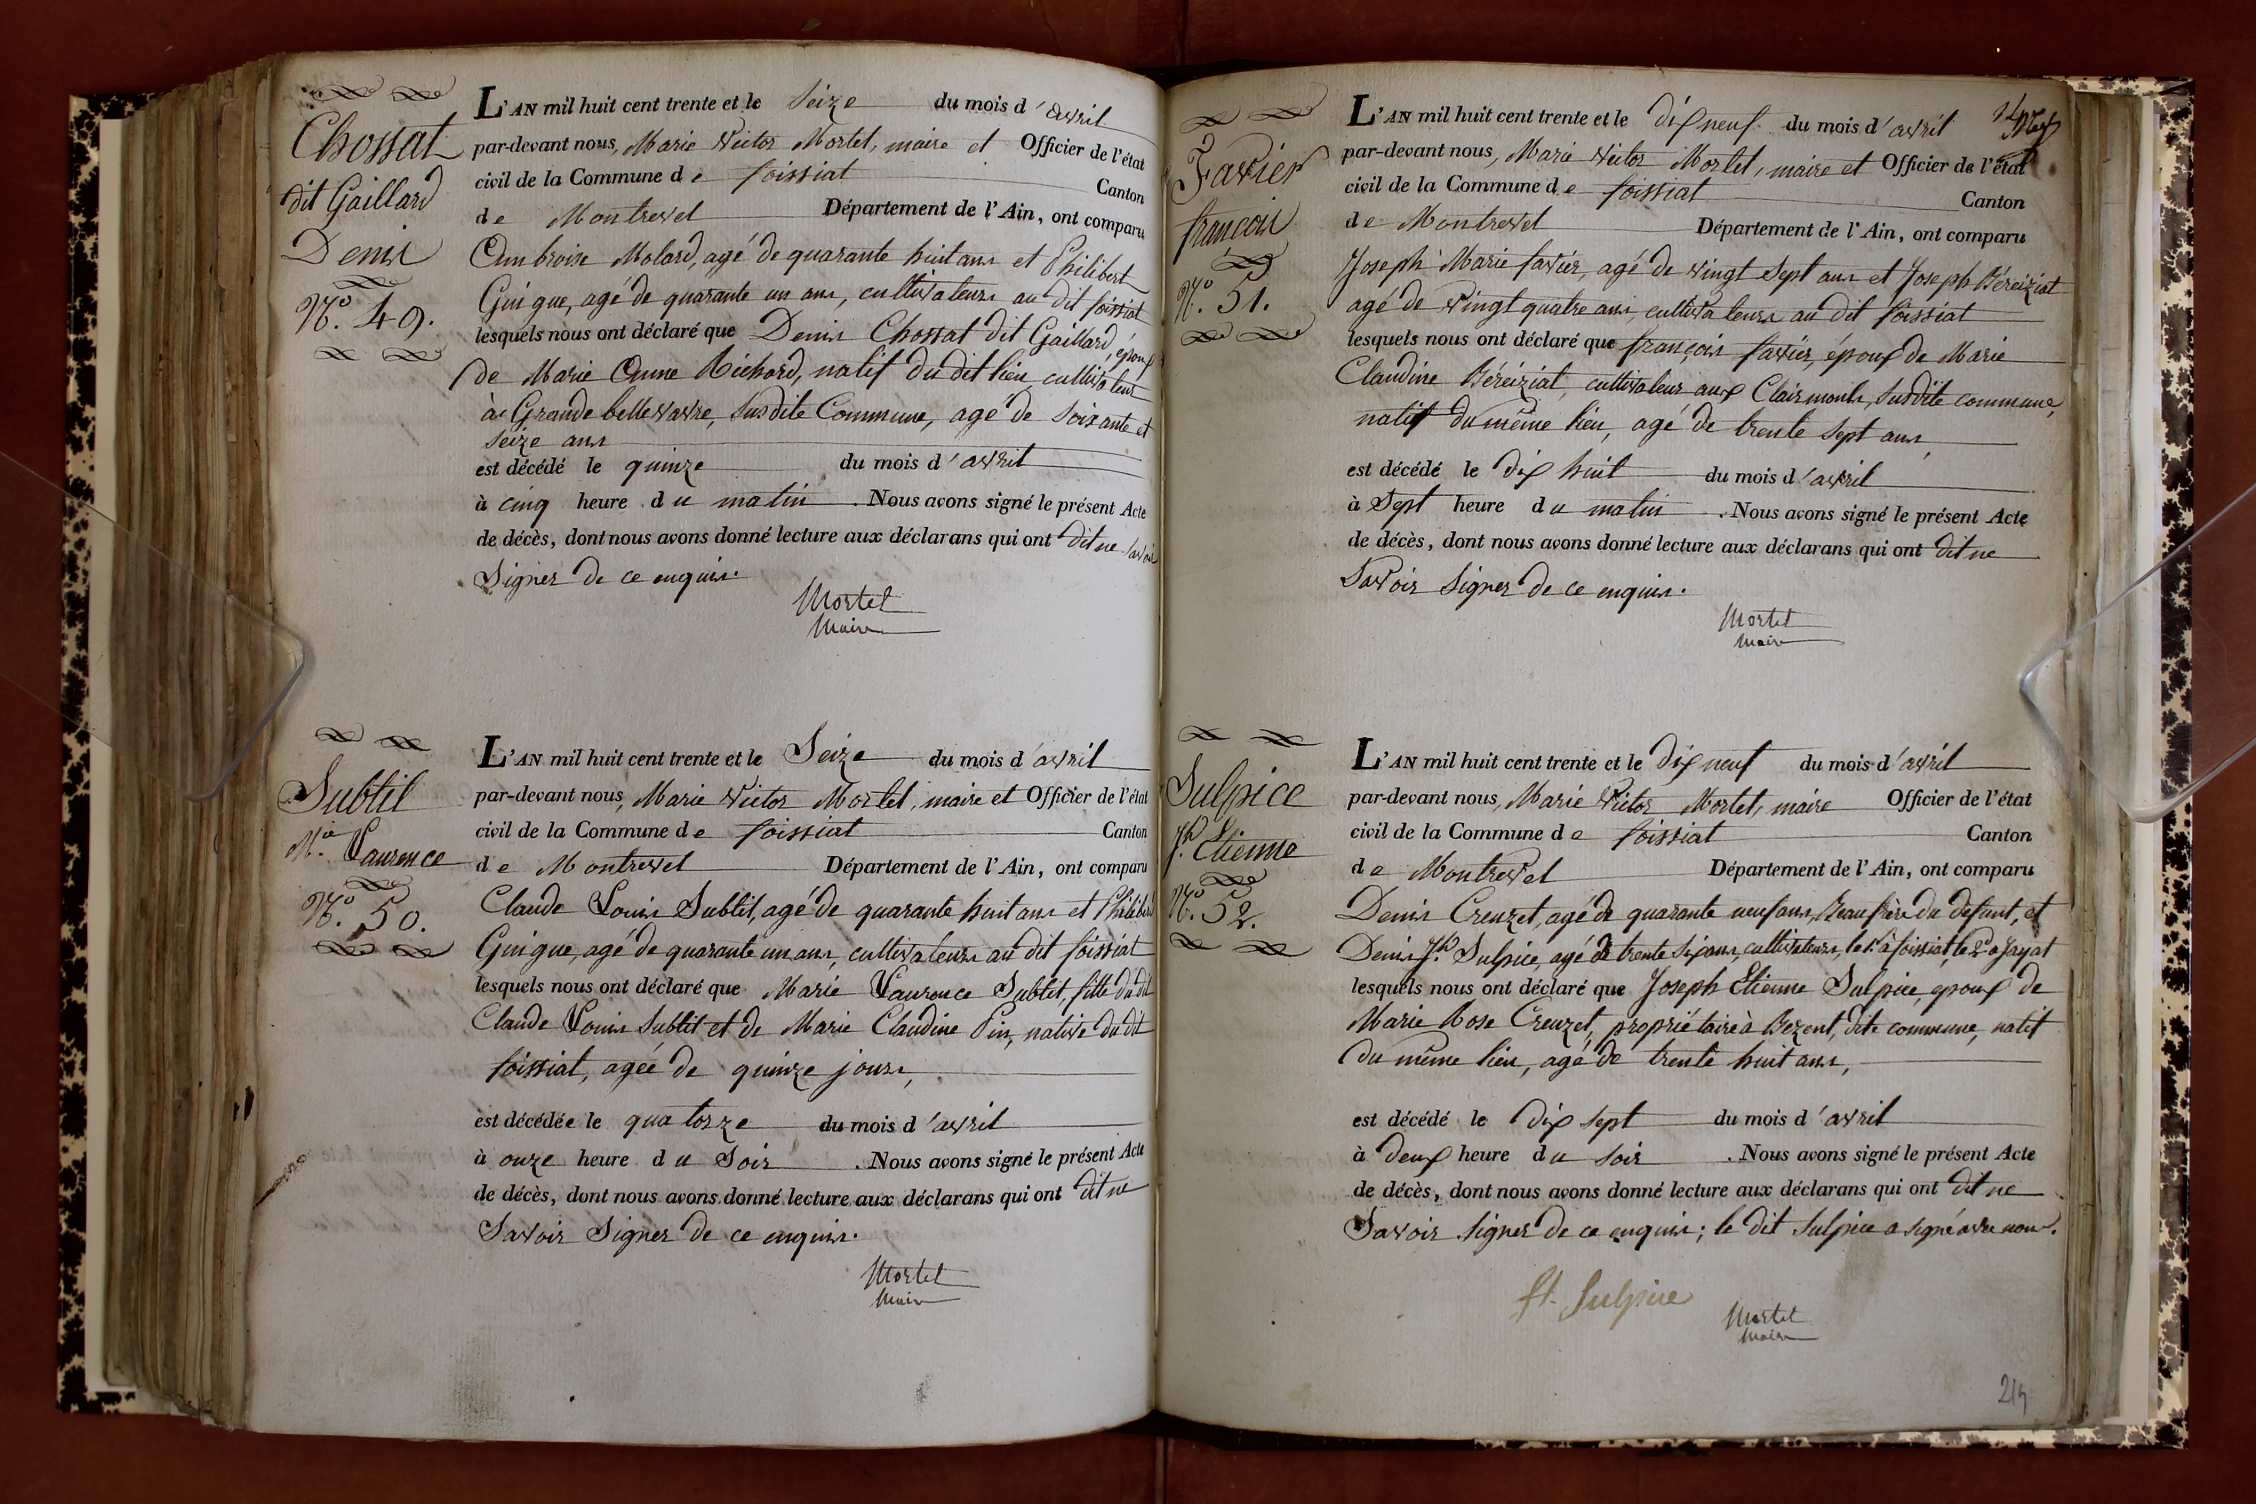 Chossat
dit Gaillard
Denis
N.º 49.
L'AN mil huit cent trente et le Seize du mois d'avril
par-devant nous, Marie Victor Mortel, maire et Officier de l'état
civil de la Commune de foissiat Canton
de Montrevel Département de l'Ain, ont comparu
Ambroise Molard, agé de quarante huit ans et Philibert
Guigue, agé de quarante un ans, cultivateurs au dit foissiat
lesquels nous ont déclaré que Denis Chossat dit Gaillard, époux
de Marie Anne Richard, natif du dit lieu, cultivateur
à Grande bellevavre, susdite Commune, agé de soixante et
seize ans
est décédé le quinze du mois d'avril
à cinq heure du matin. Nous avons signé le présent Acte
de décès, dont nous avons donné lecture aux déclarans qui ont dit ne savoir
Signer de ce enquis.
Mortel
Maire
Subtil
M.ie Laurence
N.º 50.
L'AN mil huit cent trente et le Seize du mois d'avril
par-devant nous, Marie Victor Mortel, maire et Officier de l'état
civil de la Commune de foissiat Canton
de Montrevel Département de l'Ain, ont comparu
Claude Louis Subtil, agé de quarante huit ans et Philibert
Guigue, agé de quarante un ans, cultivateurs au dit foissiat
lesquels nous ont déclaré que Marie Laurence Subtil, fille du dit
Claude Louis Subtil et de Marie Claudine Pin, native du dit
foissiat, agée de quinze jours,
est décédée le quatorze du mois d'avril
à onze heure du Soir. Nous avons signé le présent Acte
de décès, dont nous avons donné lecture aux déclarans qui ont dit ne
Savoir Signer de ce enquis.
Mortel
Maire
Favier
françois
N.º 51.
L'AN mil huit cent trente et le dix neuf du mois d'avril
par-devant nous, Marie Victor Mortel, maire et Officier de l'état
civil de la Commune de foissiat Canton
de Montrevel Département de l'Ain, ont comparu
Joseph Marie favier, agé de vingt sept ans et Joseph Béreiziat
agé de vingt quatre ans, cultivateurs au dit foissiat
lesquels nous ont déclaré que françois favier, époux de Marie
Claudine Béreiziat, cultivateur aux Clairmonts, susdite commune,
natif du même lieu, agé de trente sept ans,
est décédé le dix huit du mois d'avril
à Sept heure du matin. Nous avons signé le présent Acte
de décès, dont nous avons donné lecture aux déclarans qui ont dit ne
Savoir Signer de ce enquis.
Mortel
Maire
Sulpice
J.h Etienne
N.º 52.
L'AN mil huit cent trente et le dix neuf du mois d'avril
par-devant nous, Marie Victor Mortel, maire Officier de l'état
civil de la Commune de foissiat Canton
de Montrevel Département de l'Ain, ont comparu
Denis Creuzet, agé de quarante neuf ans, Beau frère du defunt, et
Denis J.h Sulpice, agé de trente six ans, cultivateurs, le 1.er à foissiat, le 2.e a Jayat
lesquels nous ont déclaré que Joseph Etienne Sulpice, epoux de
Marie Rose Creuzet, propriétaire à Bezent, dite commune, natif
du même lieu, agé de trente huit ans,
est décédé le dix sept du mois d'avril
à deux heure du soir. Nous avons signé le présent Acte
de décès, dont nous avons donné lecture aux déclarans qui ont dit ne
Savoir signer de ce enquis; le dit Sulpice a signé avec nous.
Sulpice
Mortel
Maire